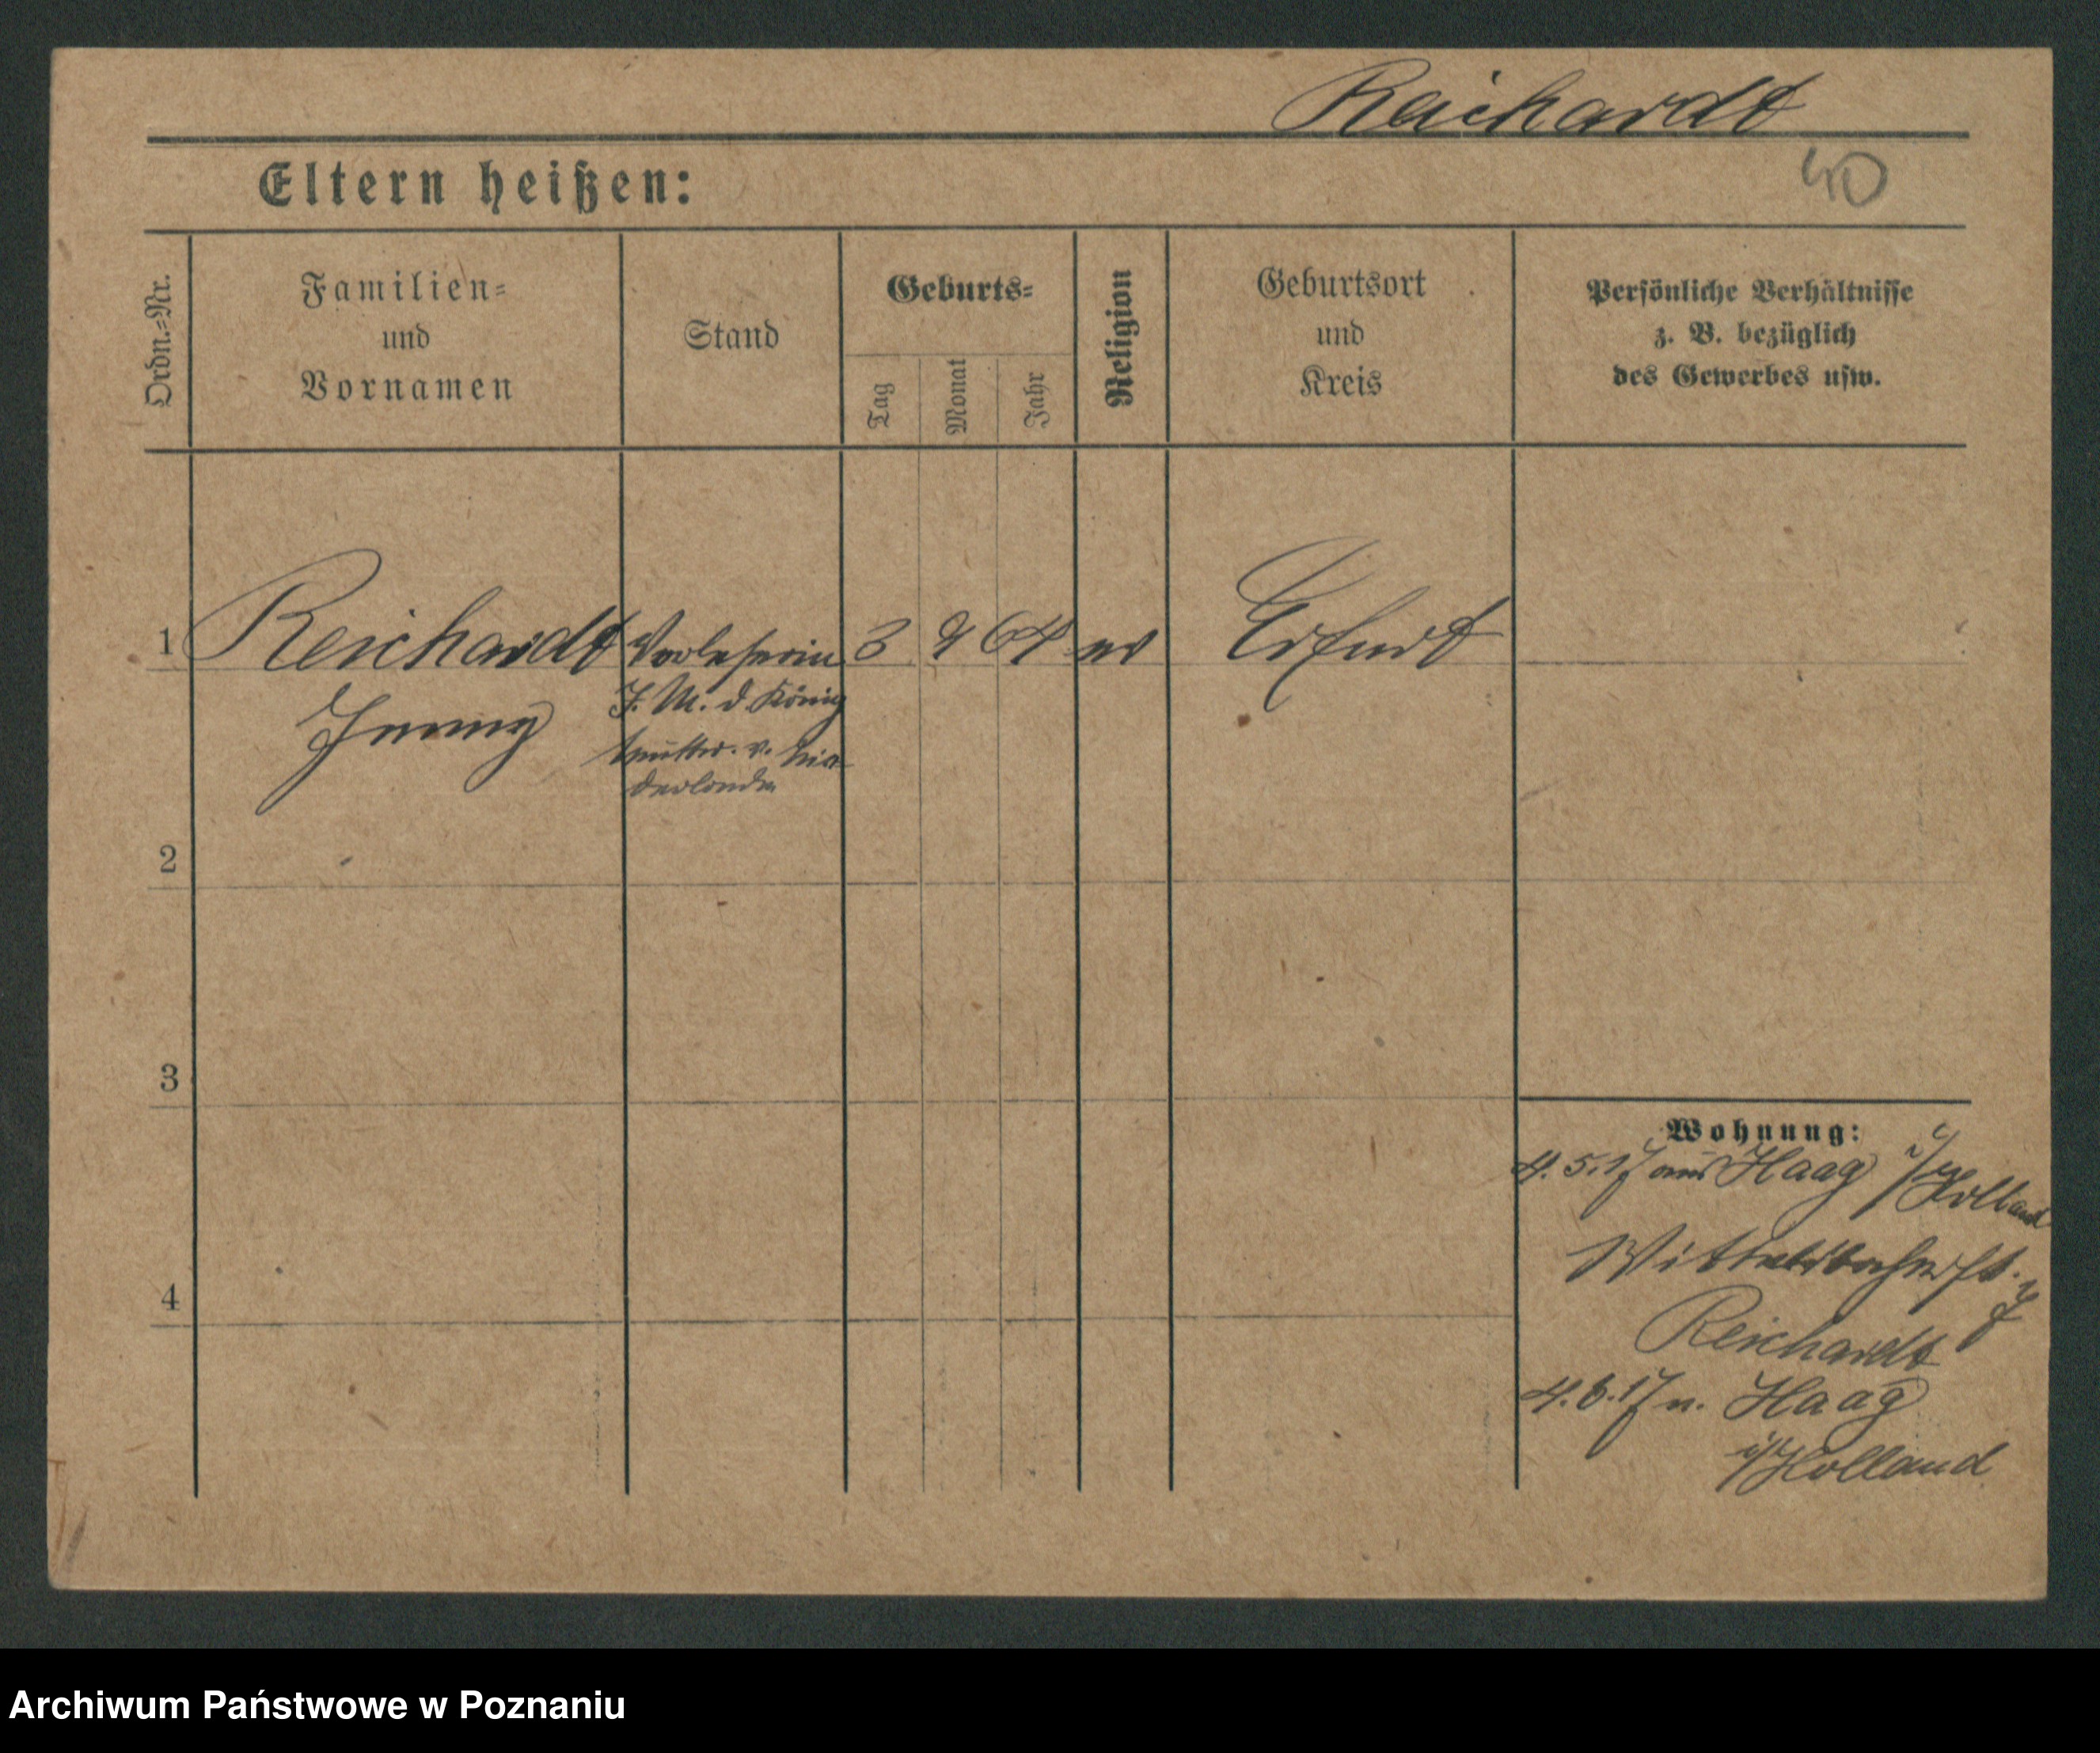 Reichardt
40
Eltern heißen:
Ordn.-Nr.
Familien-
und
Vornamen
Stand
Geburts-
Tag
Monat
Jahr
Religion
Geburtsort
und
Kreis
Persönliche Verhältnisse
z. B. bezüglich
des Gewerbes usw.
1 Reichardt Vorleserin 3 9 64 ev Erfurt
Jenny
J. M. d. König
mutter. v. Nie
derlande
2
3
4
Wohnung:
4. 5. 17 aus Haag i/Holland
Wittelsbacherstr.
Reichardt
4. 6. 17 n. Haag
i/Holland
Archiwum Państwowe w Poznaniu